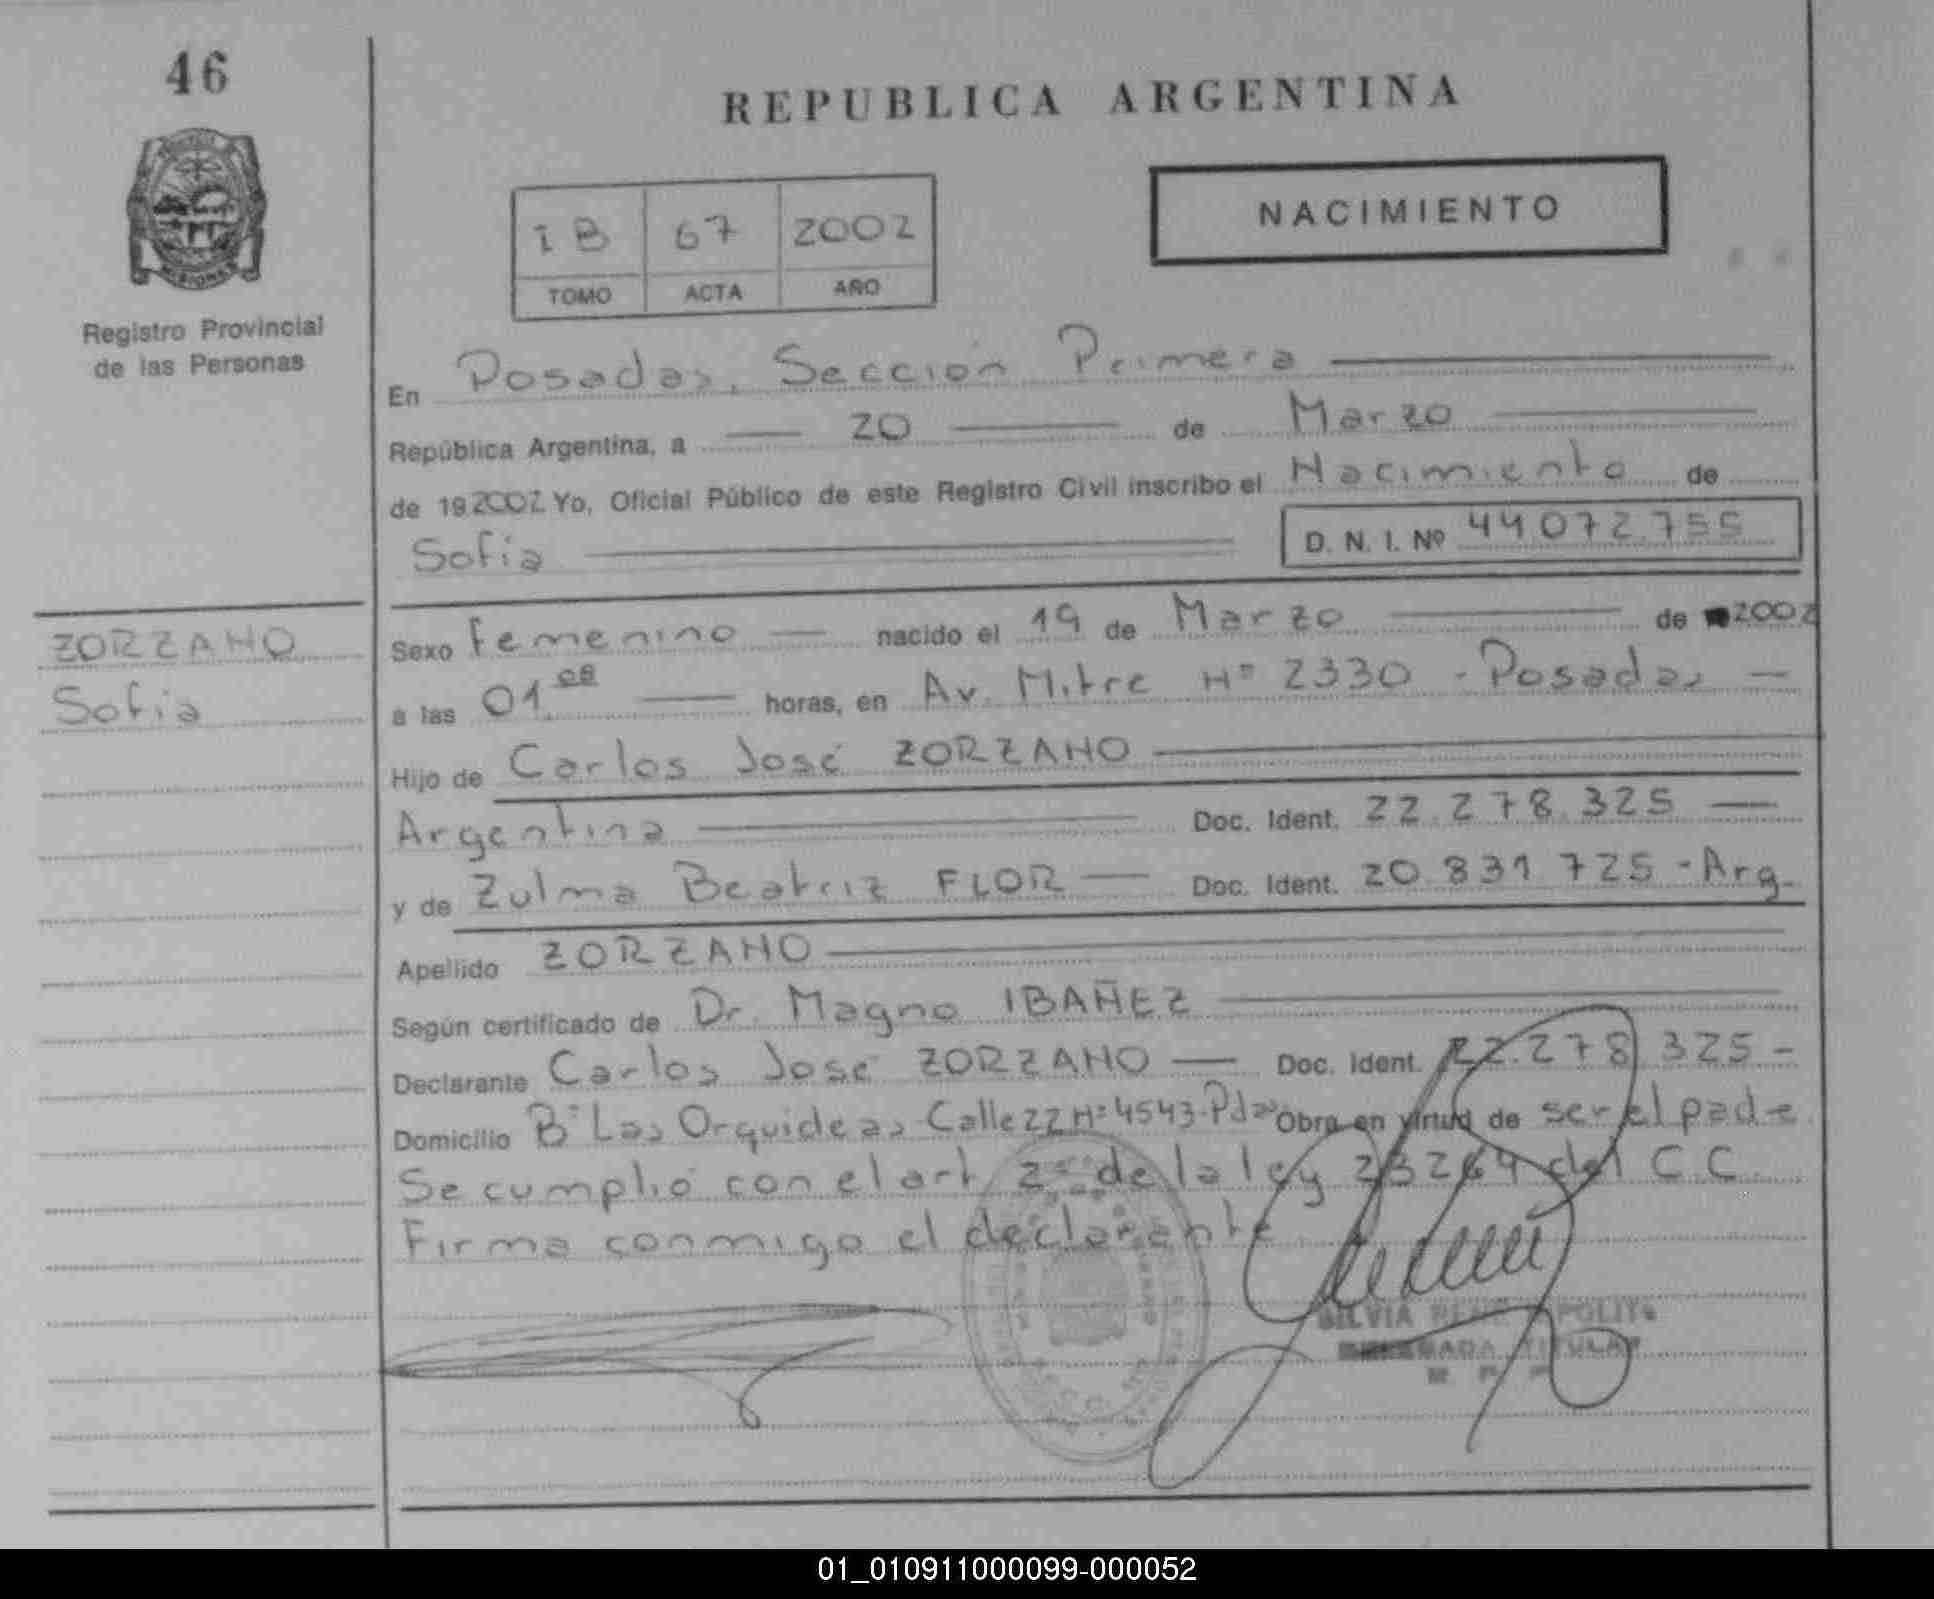 46
REPUBLICA ARGENTINA
NACIMIENTO
I B 67 2002
TOMO ACTA AÑO
Registro Provincial
de las Personas
En Posadas, Sección Primera
República Argentina, a 20 de Marzo
de 19 2002 Yo, Oficial Público de este Registro Civil inscribo el Nacimiento de
Sofia D. N. I. Nº 44 072.755
ZORZANO
Sofia
Sexo Femenino nacido el 19 de Marzo de 2002
a las 01 horas, en Av. Mitre Nº 2330 - Posadas
Hijo de Carlos José ZORZANO
Argentina Doc. Ident. 22.278.325
y de Zulma Beatriz FLOR Doc. Ident. 20.831 725 - Arg.
Apellido ZORZANO
Según certificado de Dr. Magno IBAÑEZ
Declarante Carlos José ZORZANO Doc. Ident. 22.278.325 -
Domicilio Bº Las Orquideas Calle 22 Nº 4543-Pdas Obra en virtud de ser el pade
Se cumplió con el art 2º de la ley 23264 del C.C.
Firma conmigo el declarante
SILVIA RENE
TITULAR
01_010911000099-000052